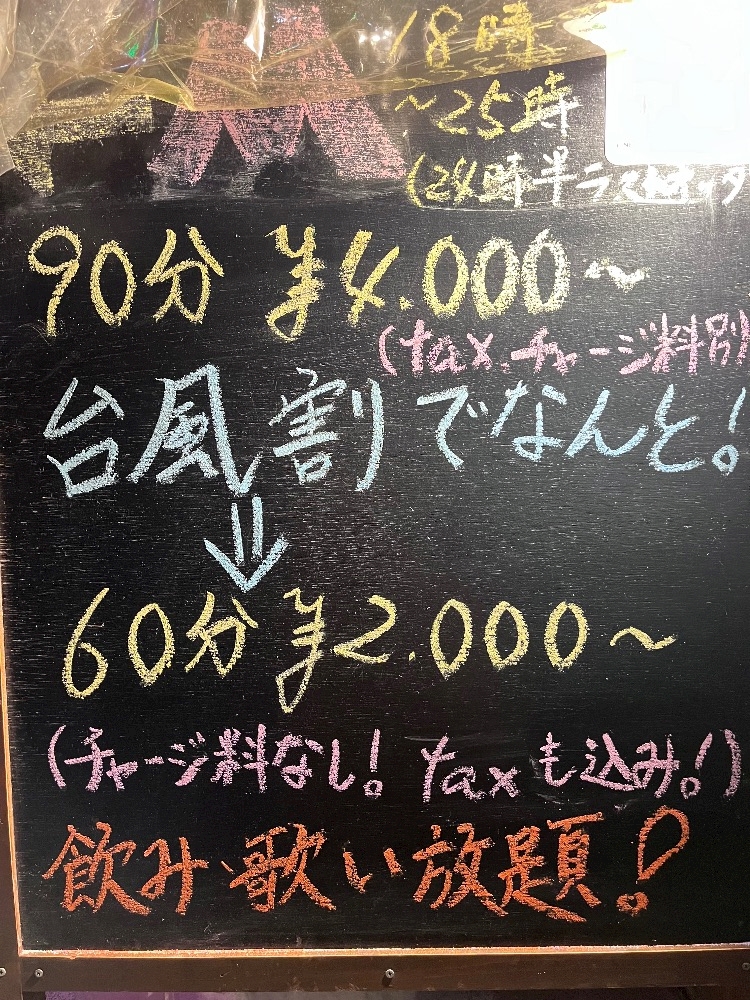 18時
~25時
(24時半ラストオーダ
90分 ¥4.000~
(tax.チャージ料別
台風割でなんと!
⇓
60分¥2.000~
(チャージ料なし! taxも込み!)
飲み・歌い放題!